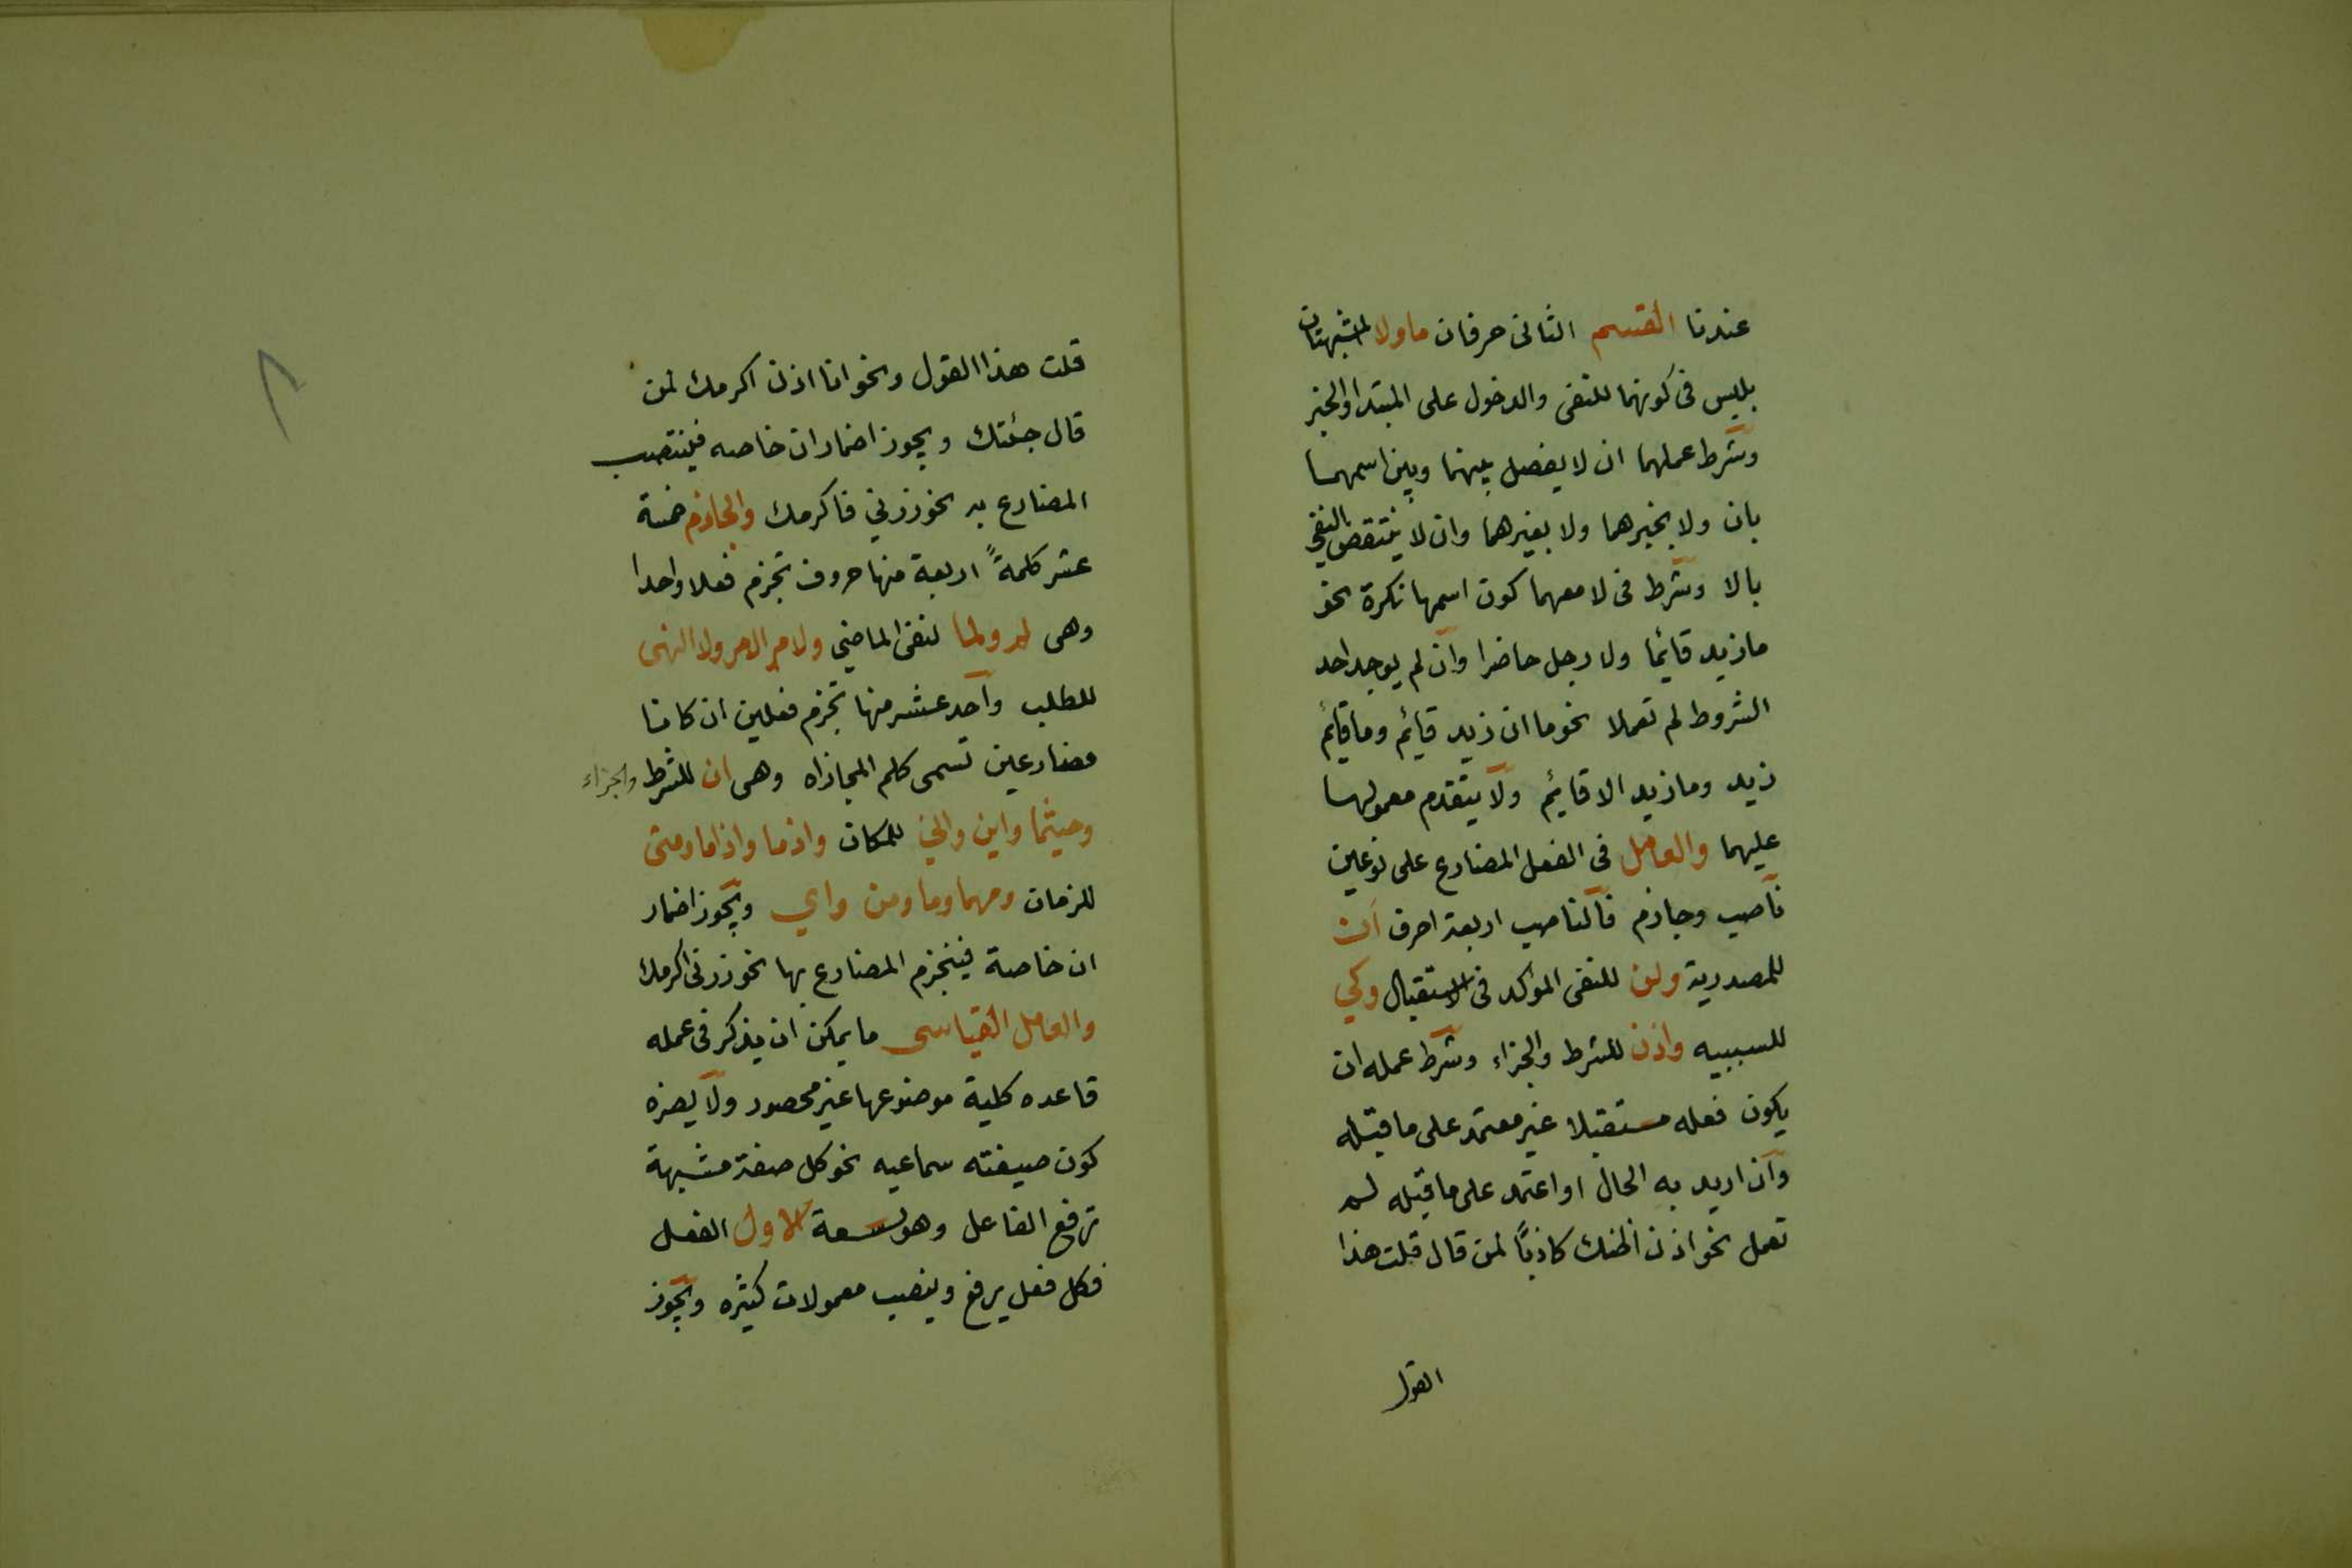 عندنا القسم الثانى حرفان ما ولا المشبهتان
بليس فى كونهما للنفى والدخول على المبتدا والخبر
وشرط عملهما ان لا يفصل بينهما وبين اسمهما
بان ولا بخبرهما ولا بغيرهما وان لا ينتقض النفى
بالا وشرط فى لا معهما كون اسمها نكرة نحو
ما زيد قائما ولا رجل حاضرا وان لم يوجد احد
الشروط لم تعملا نحو ما ان زيد قائم وما قائم
زيد وما زيد الا قائم ولا يتقدم معمولهما
عليهما والعامل فى الفعل المضارع على نوعين
ناصب وجازم فالناصب اربعة احرف ان
للمصدرية ولن للنفى المؤكد فى الاستقبال وكي
للسببيه واذن للشرط والجزاء وشرط عمله ان
يكون فعله مستقبلا غير معتمد على ما قبله
وان اريد به الحال او اعتمد على ما قبله لم
تعمل نحو اذن اظنك كاذبًا لمن قال قلت هذا
القول
قلت هذا القول ونحو انا اذن اكرمك لمن
قال جئتك ويجوز اضمار ان خاصه فينتصب
المضارع به نحو زرني فاكرمك والجازم خمسة
عشر كلمةً اربعة منها حروف تجزم فعلا واحدا
وهى لم ولما لنفى الماضي ولام الامر ولا النهى
للطلب واحد عشر منها تجزم فعلين ان كانا
مضارعين تسمى كلم المجازاه وهى ان للشرط والجزاء
وحيثما واين وانى للمكان واذما واذاما ومتى
للزمان ومهما وما ومن واي ويجوز اضمار
ان خاصة فينجزم المضارع بها نحو زرنى اكرمك
والعامل القياسى ما يمكن ان يذكر فى عمله
قاعده كلية موضوعها غير محصور ولا يضره
كون صيغته سماعيه نحو كل صفة مشبهة
ترفع الفاعل وهو تسعة الاول الفعل
فكل فعل يرفع وينصب معمولات كثيره ويجوز